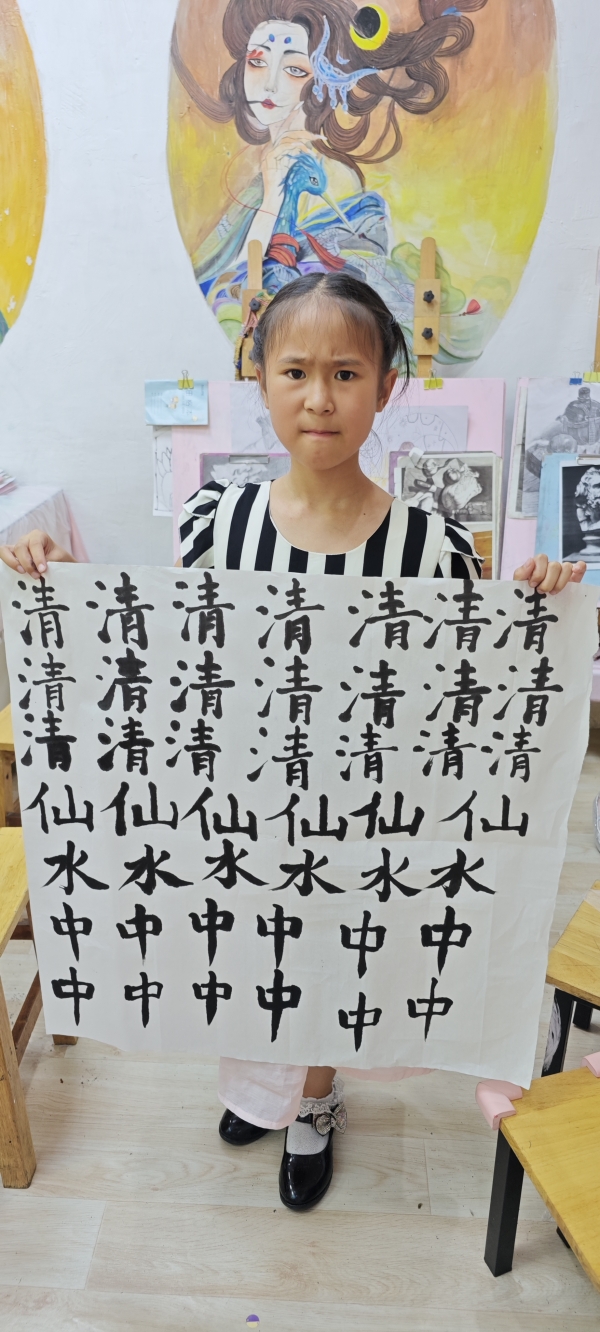 清清清清清清清
清清清清清清清
清清清清清清清
仙仙仙仙仙仙
水水水水水水
中中中中中中
中中中中中中